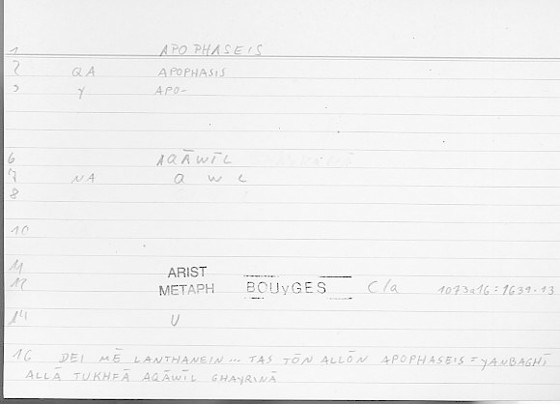 1 APOPHASEIS
2 QA APOPHASIS
3 Y APO-
6 AQĀWĪL
7 NA Q W L
8
10
11 ARIST
12 METAPH BOUYGES C/a 1073a16 = 1639.13
14 U
16 DEI MĒ LANTHANEIN ... TAS TŌN ALLŌN APOPHASEIS = YANBAGHĪ
ALLĀ TUKHFĀ AQĀWĪL GHAYRINĀ